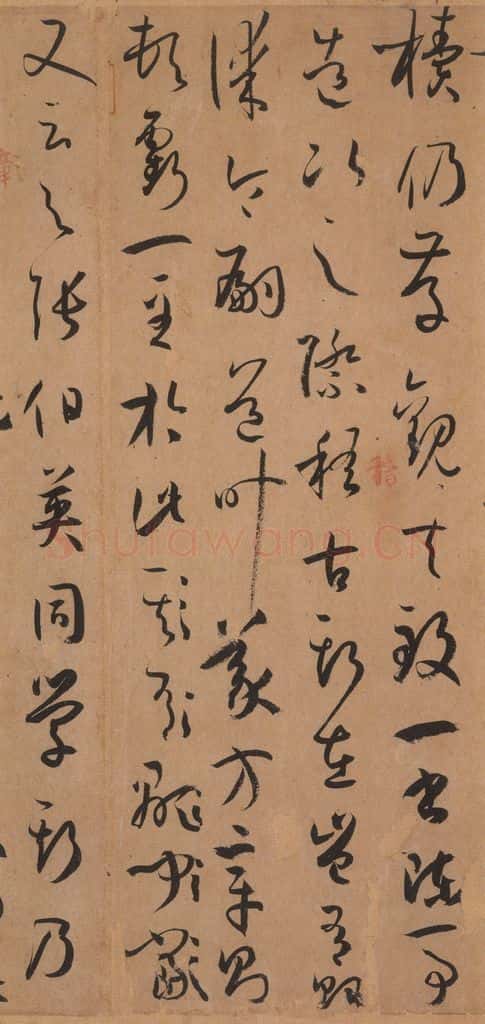 牘仍存觀夫致一書陳一事
造次之際稽古斯在豈有貽
謀令嗣道叶義方章則
頓虧一至於此
又云與張伯英同學斯乃
shufawang.CN